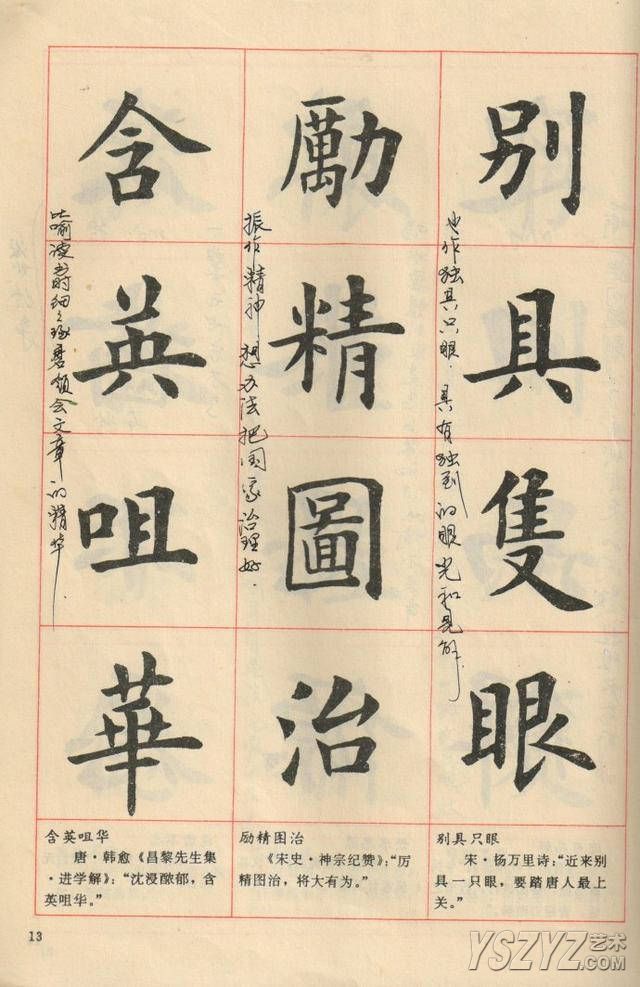 别具隻眼
也作独具只眼．具有独到的眼光和见解．
勵精圖治
振作精神 想办法把国家治理好．
含英咀華
比喻读书时细细琢磨领会文章的精华．
别具只眼
宋·杨万里诗：“近来别
具一只眼，要踏唐人最上
关。”
励精图治
《宋史·神宗纪赞》：“厉
精图治，将大有为。”
含英咀华
唐·韩愈《昌黎先生集
·进学解》：“沈浸醲郁，含
英咀华。”
13
YSZYZ艺术
.COM